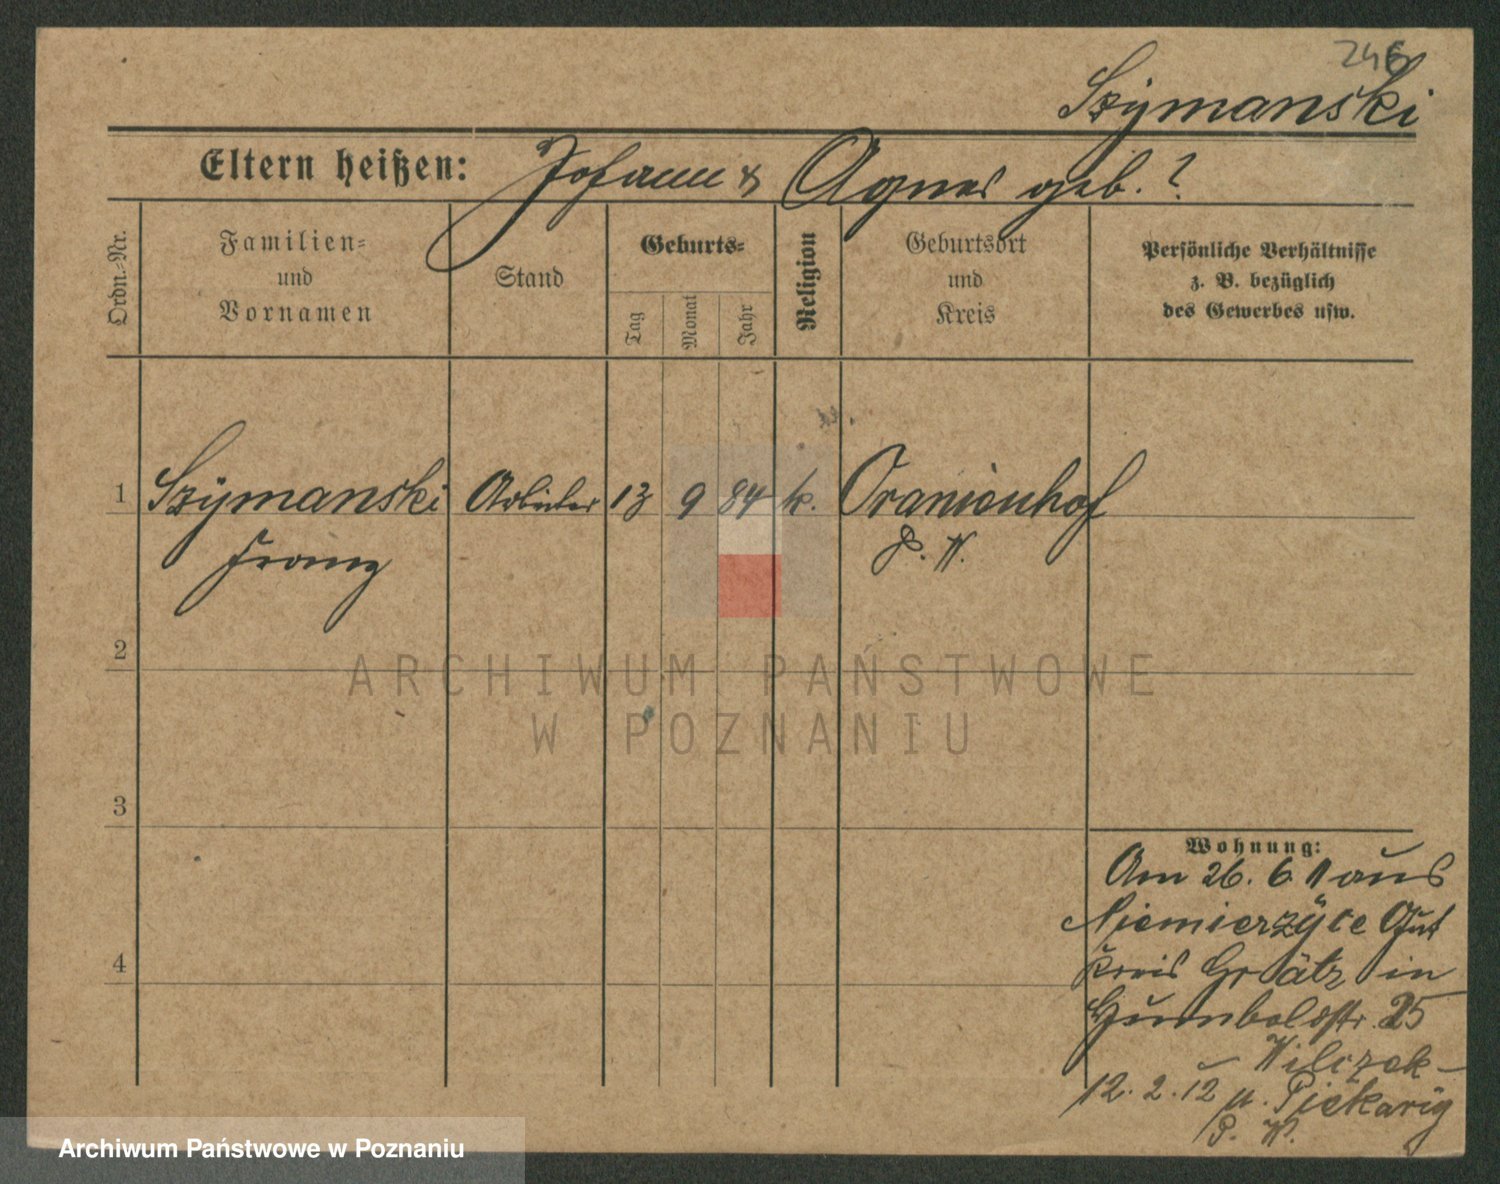 246
Szÿmanski
Eltern heißen: Johann & Agnes geb. ?
Ordn.=Nr.
Familien=
und
Vornamen
Stand
Geburts=
Tag
Monat
Jahr
Religion
Geburtsort
und
Kreis
Persönliche Verhältnisse
z. B. bezüglich
des Gewerbes usw.
1 Szÿmanski Arbeiter 13 9 84 k. Oranienhof
Franz P. W.
2
ARCHIWUM PAŃSTWOWE
W POZNANIU
3
4
Wohnung:
Am 26. 6. 11 aus
Niemierzÿce Gut
Kreis Grätz in
Humboldstr. 25
Wilczek
12. 2. 12 n. Piekarÿ
P. W.
Archiwum Państwowe w Poznaniu